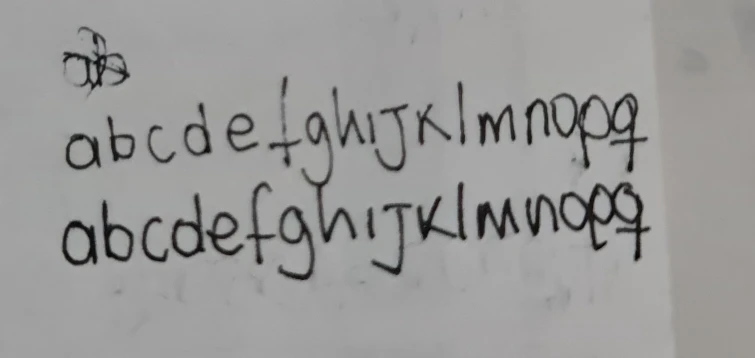 ab
abcdefghijklmnopq
abcdefghijklmnopq